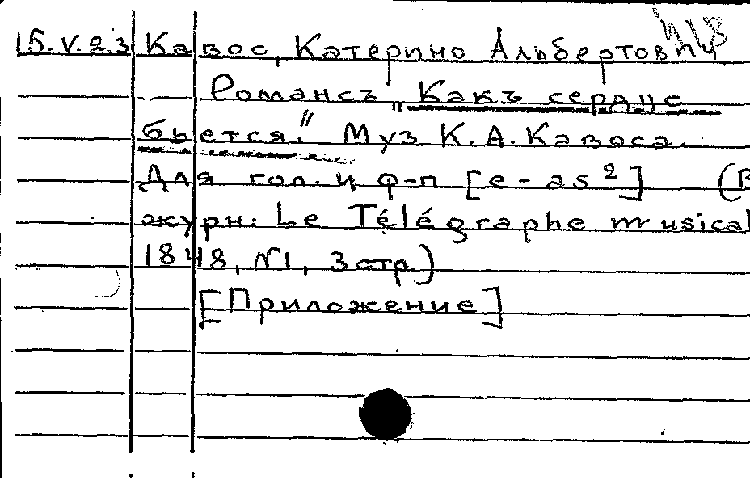 15.V.23 Кавос, Катерино Альбертович
Романсъ „Какъ сердце
бьется." Муз К.А.Кавоса.
Для гол. и ф-п [e - as²] (В
журн: Le Télégraphe musical
1848, N1, 3 стр.)
[Приложение]